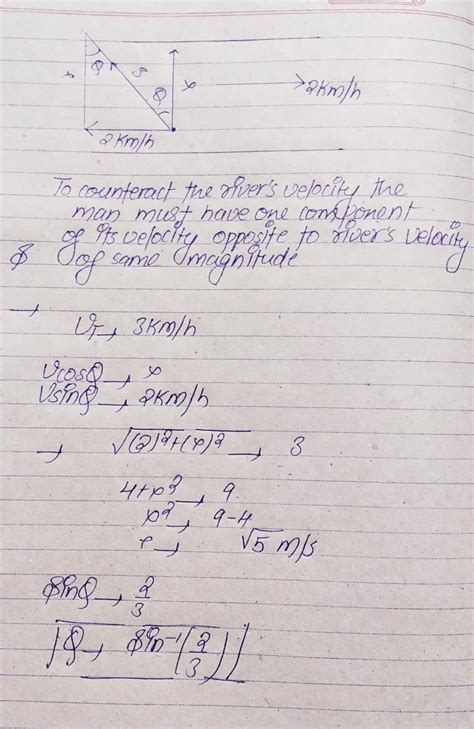 x θ 3 θ x → 2km/h
2km/h
To counteract the river's velocity the
man must have one component
of its velocity opposite to river's velocity
& of same magnitude
→
VT → 3km/h
Vcosθ → x
Vsinθ → 2km/h
→ √(2)²+(x)² → 3
4+x² → 9
x² → 9-4
x → √5 m/s
Sinθ → 2/3
θ → Sin⁻¹(2/3)